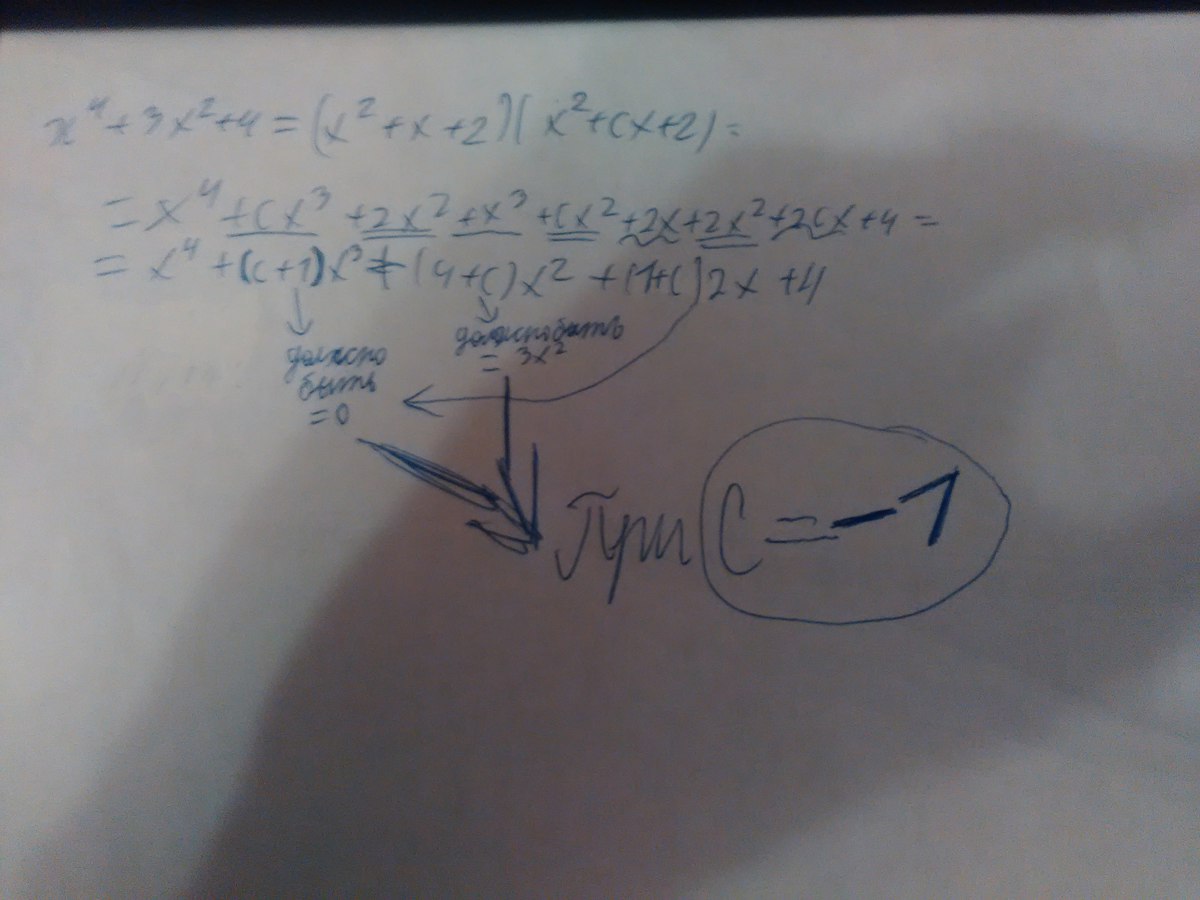 x⁴+3x²+4=(x²+x+2)(x²+cx+2)=
=x⁴+cx³+2x²+x³+cx²+2x+2x²+2cx+4=
=x⁴+(c+1)x³+(4+c)x²+(1+c)2x+4
должно
быть
=0
должно быть
= 3x²
При C=-1